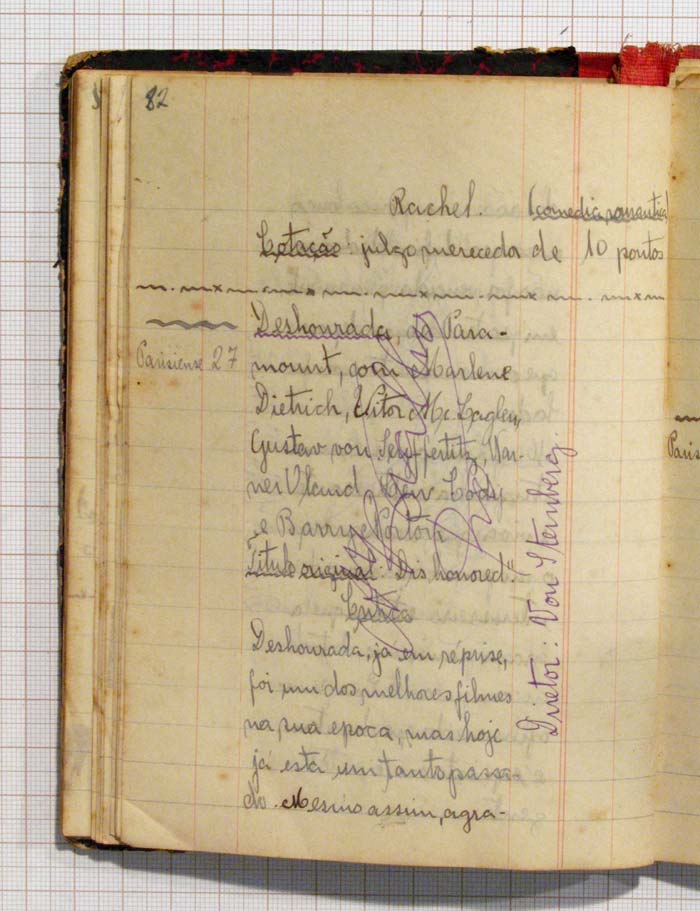 82
Rachel. (comedia romantica)
Cotação: julgo merecedo de 10 pontos
Parisiense 27
Deshonrada, da Para-
mount, com Marlene
Dietrich, Vitor Mc Laglen,
Gustav von Seyffertitz, War-
ner Oland, Lew Cody
e Barry Norton
Titulo original: "Dishonored".
Critica
Deshonrada, já em réprise,
foi um dos melhores filmes
na sua epoca, mas hoje
já está um tanto passa-
do. Mesmo assim, agra-
Diretor: Von Sternberg
Paris